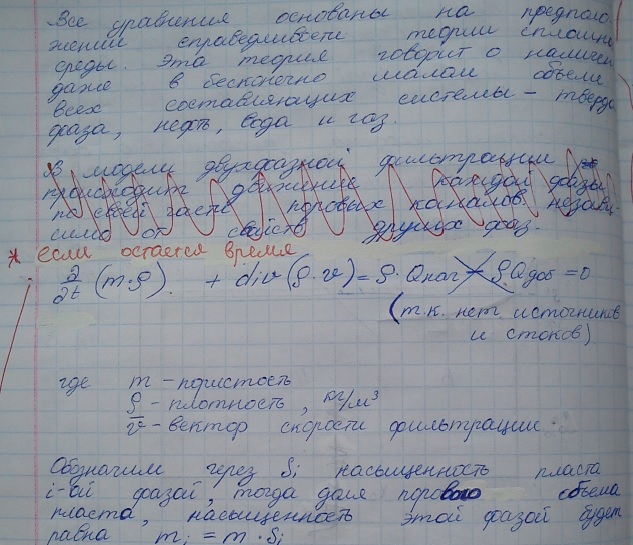 Все уравнения основаны на предполо-
жении справедливости теории сплошн
среды. Эта теория говорит о наличи
даже в бесконечно малом объеме
всех составляющих системы – тверда
фаза, нефть, вода и газ.
В модели двухфазной фильтрации
происходит движение каждой фазы
по своей части поровых каналов, незави-
симо от свойств других фаз.
* если остается время
∂/∂t (m·ρ) + div(ρ·v) = ρ·Qнаг – ρ·Qдоб = 0
(т.к. нет источников
и стоков)
где m – пористость
ρ – плотность, кг/м³
v – вектор скорости фильтрации.
Обозначим через Si насыщенность пласта
i-ой фазой, тогда доля порового объема
пласта, насыщенность этой фазой будет
равна mi = m·Si